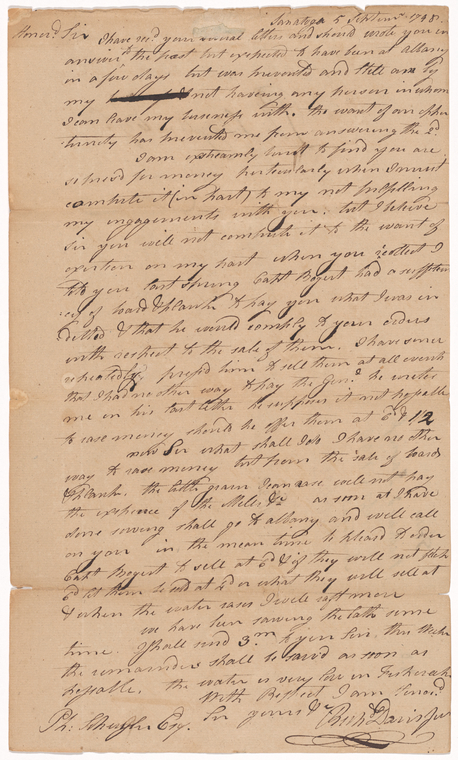 Saratoga 5 Septemr. 1798
Honord. Sir I have recd. your several letters and should wrote you in
answer to the past but expected to have been at Albany
in a few days but was prevented and still am by
my not having any person in whom
I can leave my business with. the want of an oppor
tunity has prevented me from answering the 2d.
I am extreamly hurt to find you are
so pressd for money particularly when I must
compute it (in part) to my not fulfilling
my engagements with you. but I believe
Sir you will not compute it to the want of
exertion on my part when you recollect I
told you last spring Capt Bogert had a suffitien
cy of board & plank to pay you what I was in
debted & that he would comply to your orders
with respect to the sale of them. I have since
repeatedly pressd him to sell them at all events
that I had no other way to pay the Genl. he writes
me in his last letter he supposes it not possible
to rase money should he offer them at 6d 12
now Sir what shall I do I have no other
way to rase money but from the sale of boards
& plank. the little grain I can rase will not pay
the expence of the Mills &c as soon as I have
done sowing shall go to albany and will call
on you in the mean time to please to order
Capt Bogert to sell at 6d & if they will not fetch
6d let them be sold at or what they will sell at
& when the water rases I will cut more
we have been sawing the lath some
time. I shall send 3.m to you Sir, this Week
the remainder shall be sawd as soon as
possable. the water is very low in Fishcreek.
With Respect I am Sincd.
Sir yours &c
Ph. Schuyler Esq.